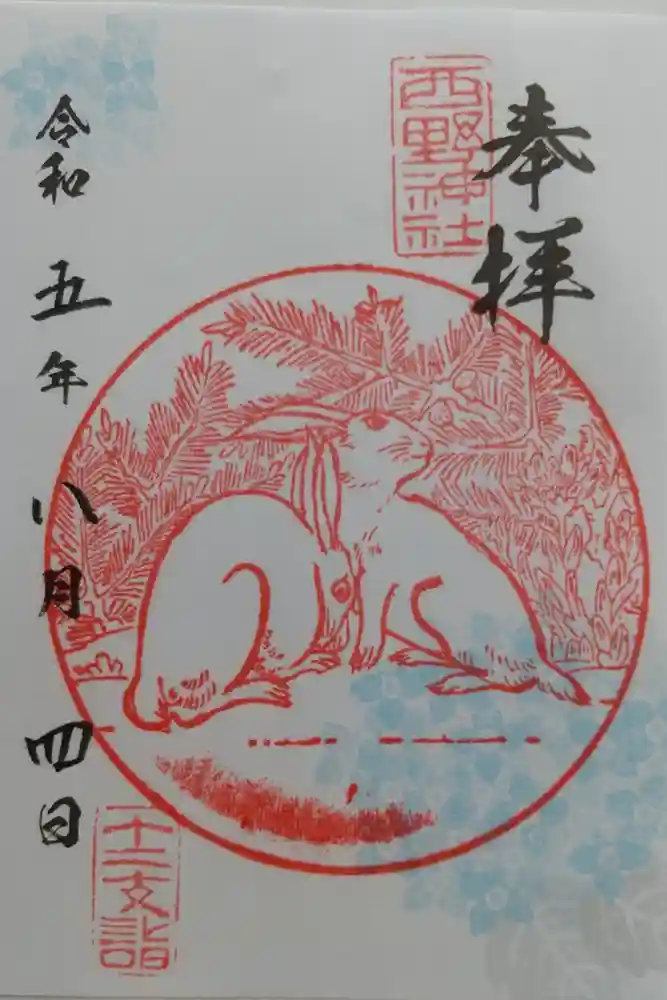 奉拝
西野神社
令和五年八月四日
十二支詣